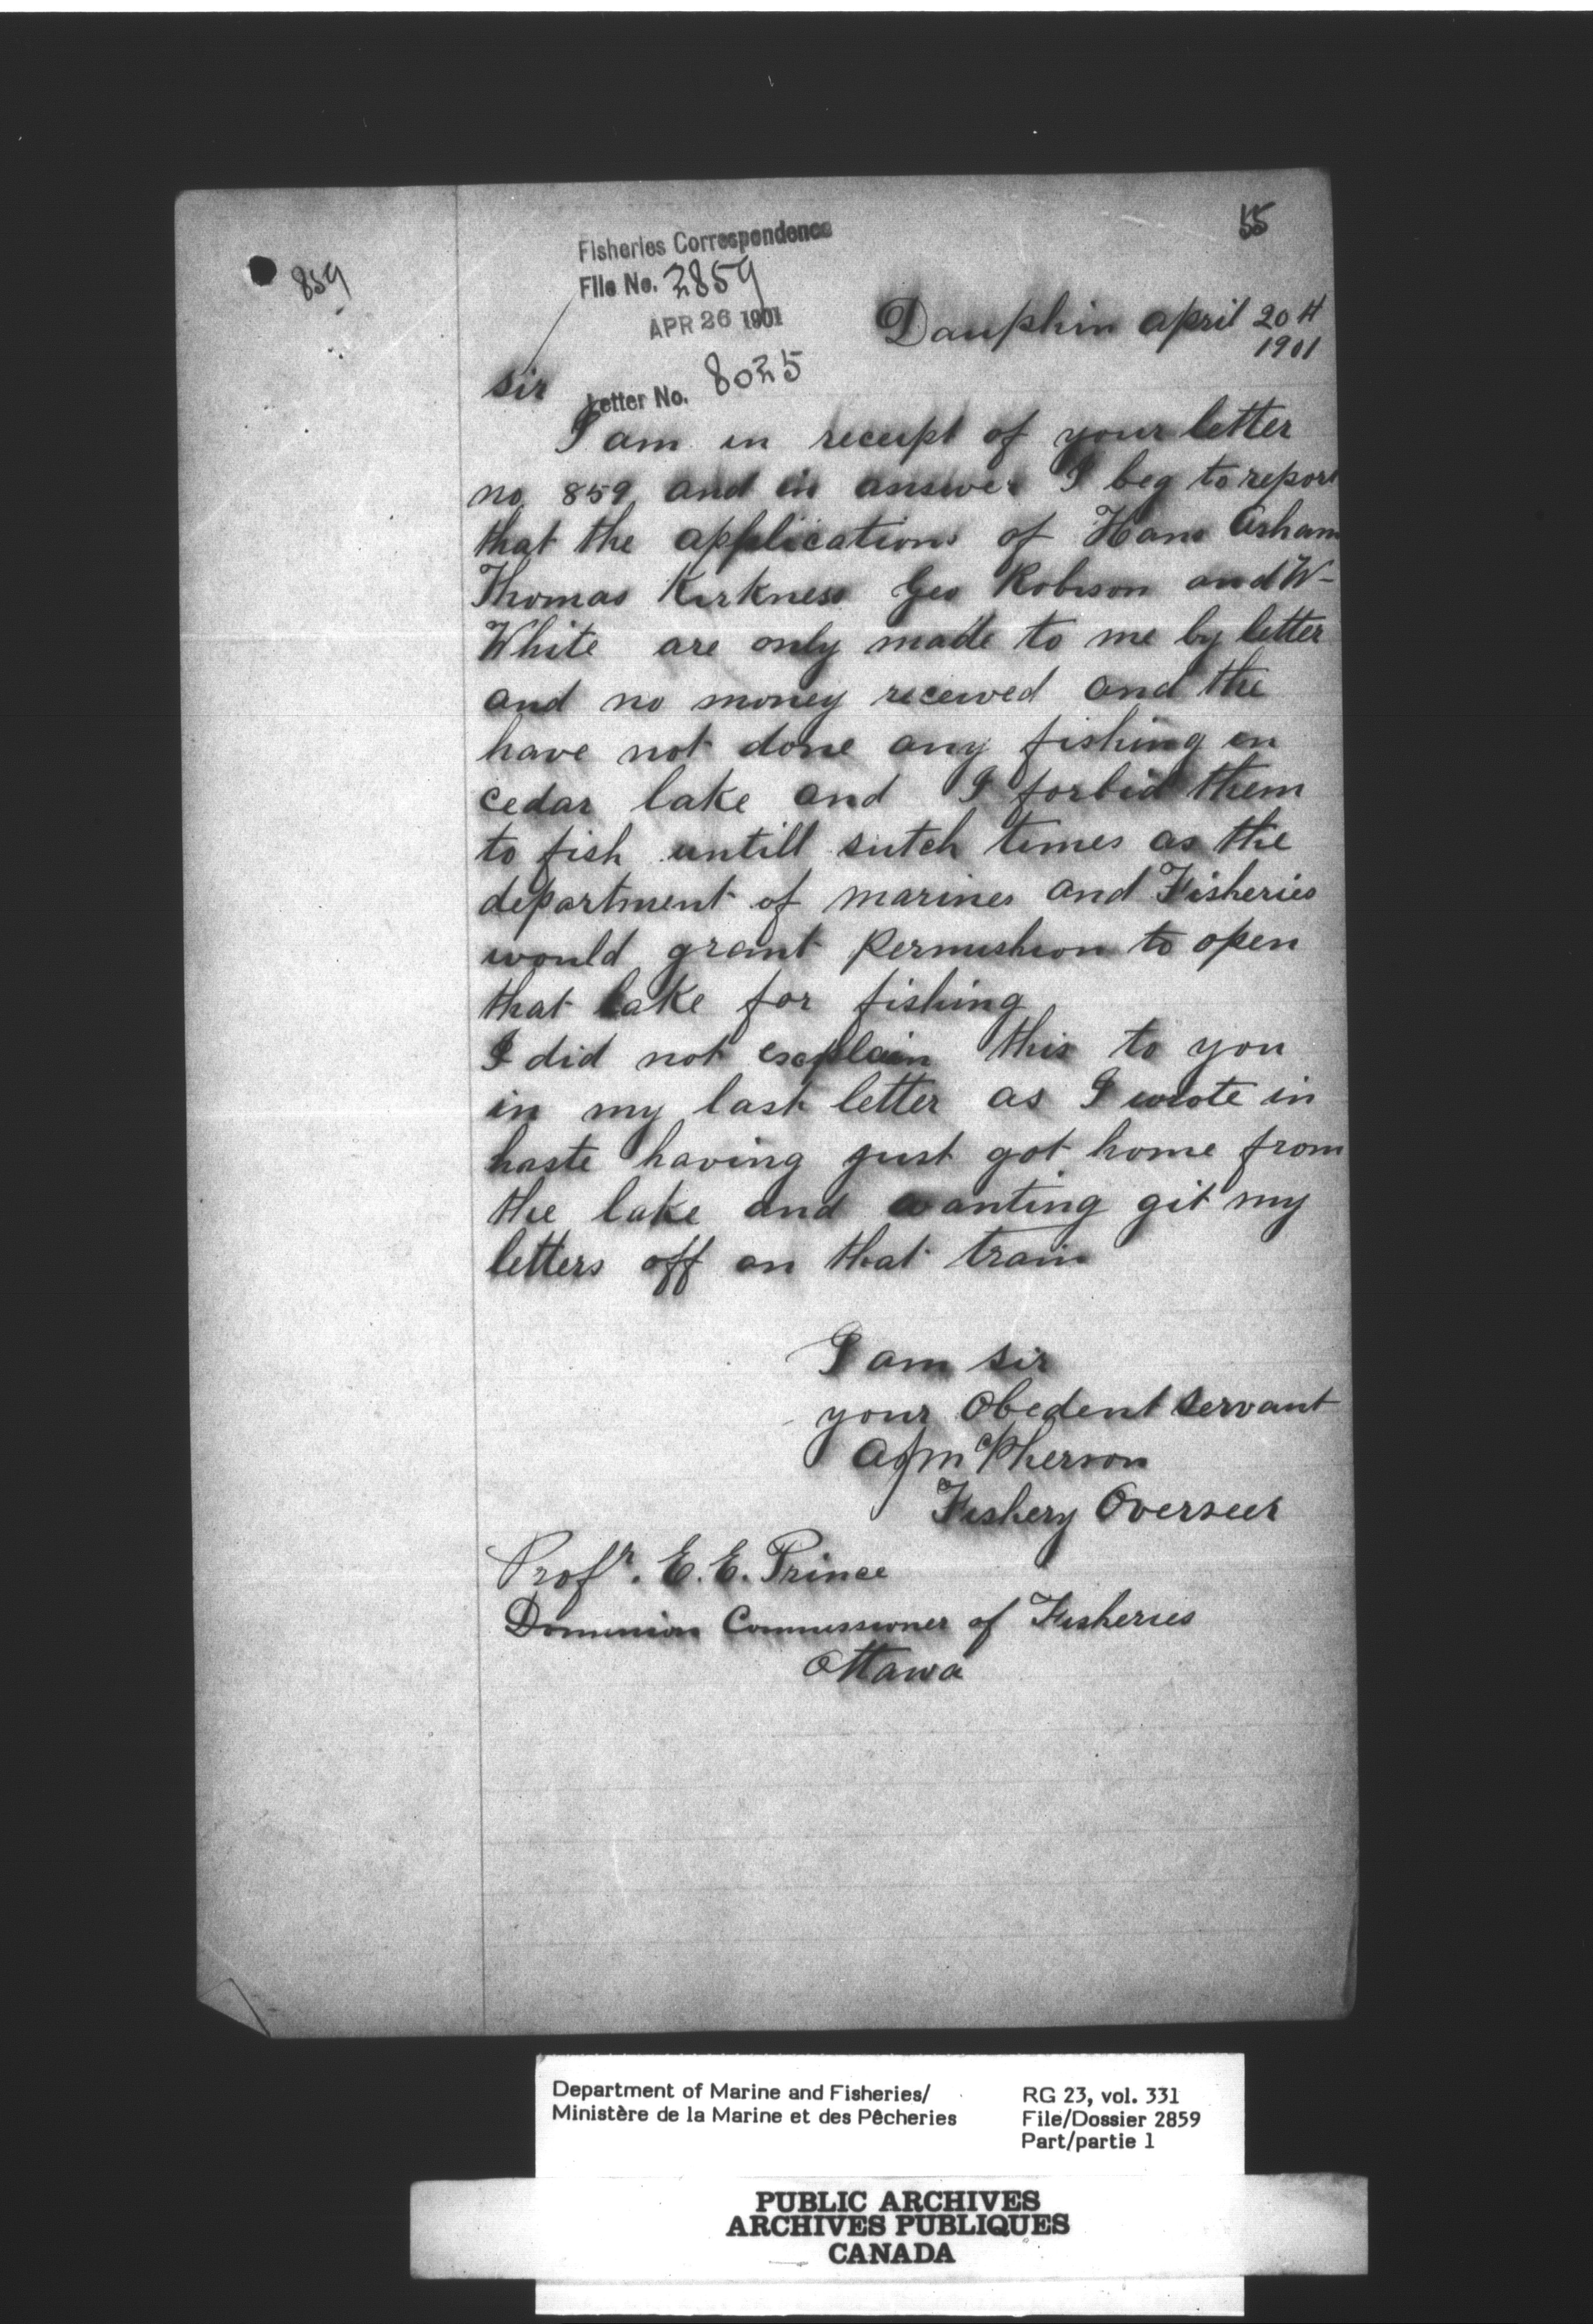 55
859
Fisheries Correspondence
File No. 2859
APR 26 1901
Dauphin april 20th
1901
Letter No. 8035
sir
I am in receipt of your letter
no 859 and in answer I beg to report
that the applications of Hans
Thomas Kirkness Geo Robison and W-
White are only made to me by letter
and no money received and the
have not done any fishing in
cedar lake and I forbid them
to fish untill sutch times as the
department of marines and Fisheries
would grant permishion to open
that lake for fishing
I did not explain this to you
in my last letter as I wrote in
haste having just got home from
the lake and wanting git my
letters off on that train
I am sir
your Obedent servant
A J McPherson
Fishery Overseer
Profr. E. E. Prince
Dominion Commissioner of Fisheries
Ottawa
Department of Marine and Fisheries/
Ministère de la Marine et des Pêcheries
RG 23, vol. 331
File/Dossier 2859
Part/partie 1
PUBLIC ARCHIVES
ARCHIVES PUBLIQUES
CANADA